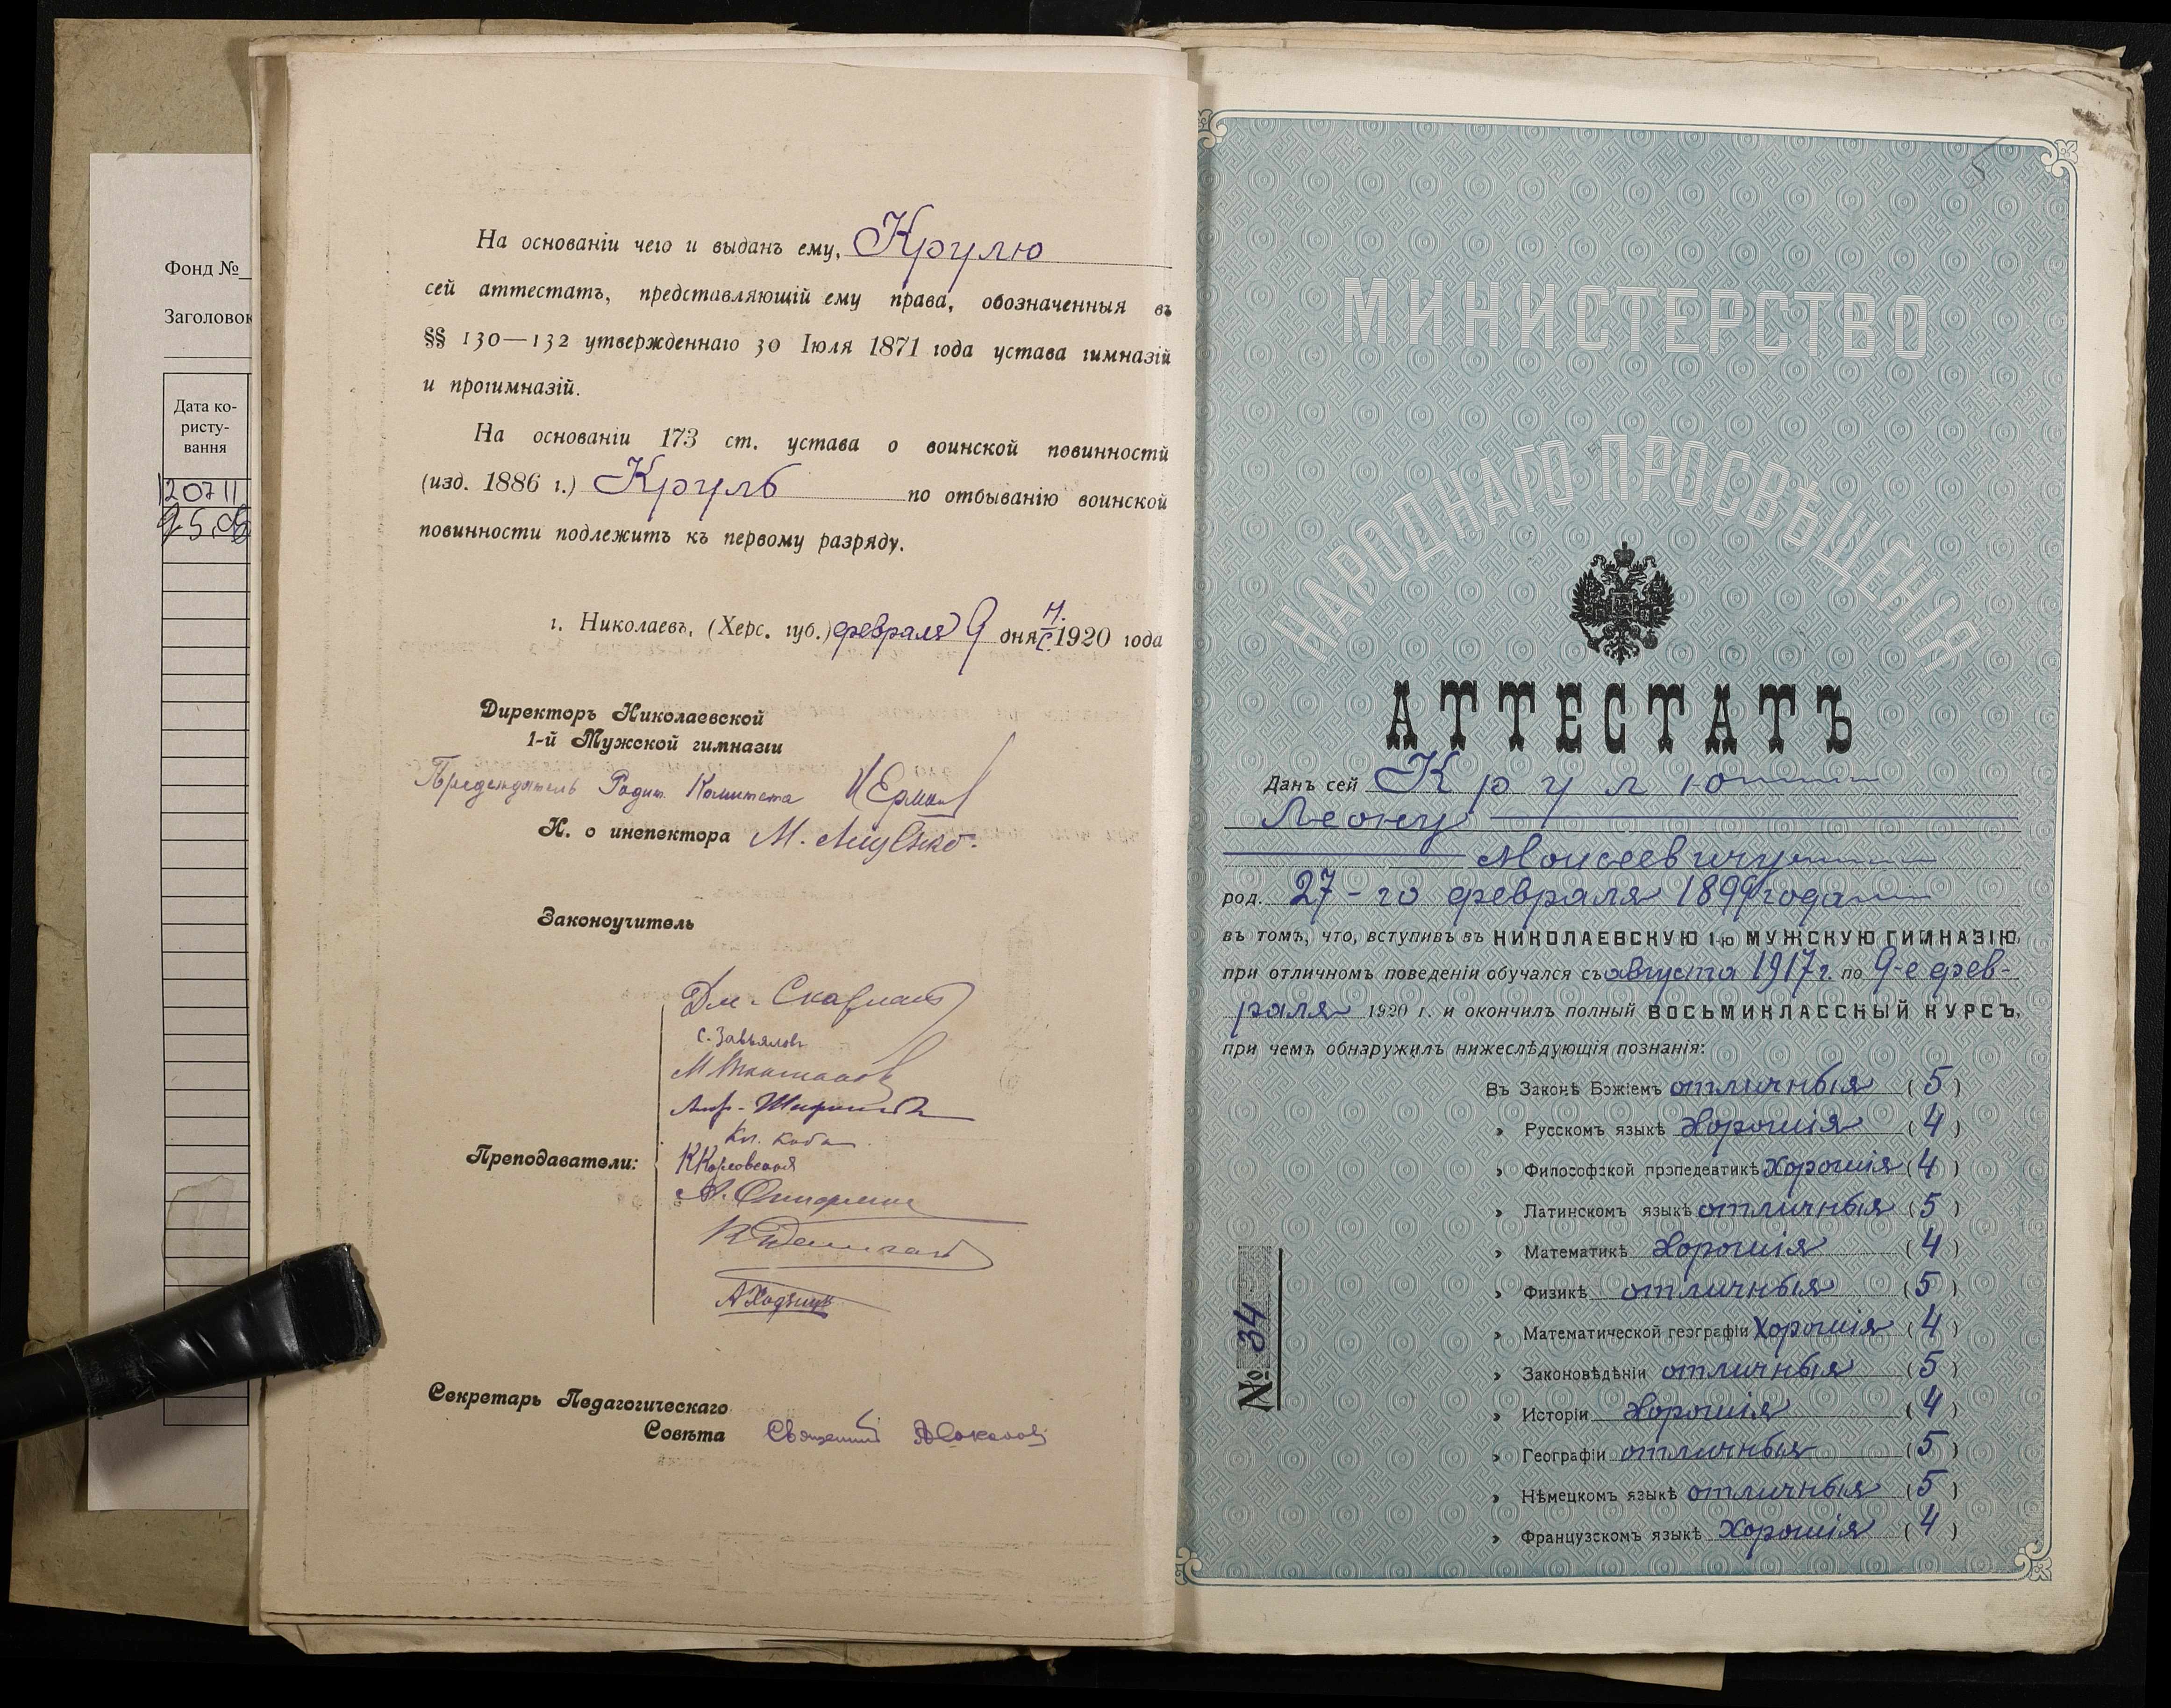 Фонд №
Заголовок
Дата ко-
ристу-
вання
На основаніи чего и выданъ ему, Крулю
сей аттестатъ, представляющій ему права, обозначенныя въ
§§ 130—132 утвержденнаго 30 Іюля 1871 года устава гимназій
и прогимназій.
На основаніи 173 ст. устава о воинской повинности
(изд. 1886 г.) Круль по отбыванію воинской
повинности подлежитъ къ первому разряду.
г. Николаевъ, (Херс. губ.) февраля 9 дня н./с. 1920 года
Директоръ Николаевской
1-й Мужской гимназіи
Председатель Родит. Комитета
Н. о инспектора М.
Законоучитель
Дм.
С. Завьяловъ
Преподаватели:
Секретарь Педагогическаго
Совѣта Священникъ
5
МИНИСТЕРСТВО
НАРОДНАГО ПРОСВѢЩЕНІЯ
АТТЕСТАТЪ
Данъ сей Крулю
Леону
Моисеевичу
род. 27-го февраля 1899 года
въ томъ, что, вступивъ въ НИКОЛАЕВСКУЮ 1-ю МУЖСКУЮ ГИМНАЗІЮ,
при отличномъ поведеніи обучался съ августа 1917 г. по 9-е фев-
раля 1920 г. и окончилъ полный ВОСЬМИКЛАССНЫЙ КУРСЪ,
при чемъ обнаружилъ нижеслѣдующія познанія:
Въ Законѣ Божіемъ отличныя (5)
» Русскомъ языкѣ хорошія (4)
» Философской пропедевтикѣ хорошія (4)
» Латинскомъ языкѣ отличныя (5)
» Математикѣ хорошія (4)
» Физикѣ отличныя (5)
» Математической географіи хорошія (4)
» Законовѣдѣніи отличныя (5)
» Исторіи хорошія (4)
» Географіи отличныя (5)
» Нѣмецкомъ языкѣ отличныя (5)
» Французскомъ языкѣ хорошія (4)
№ 34